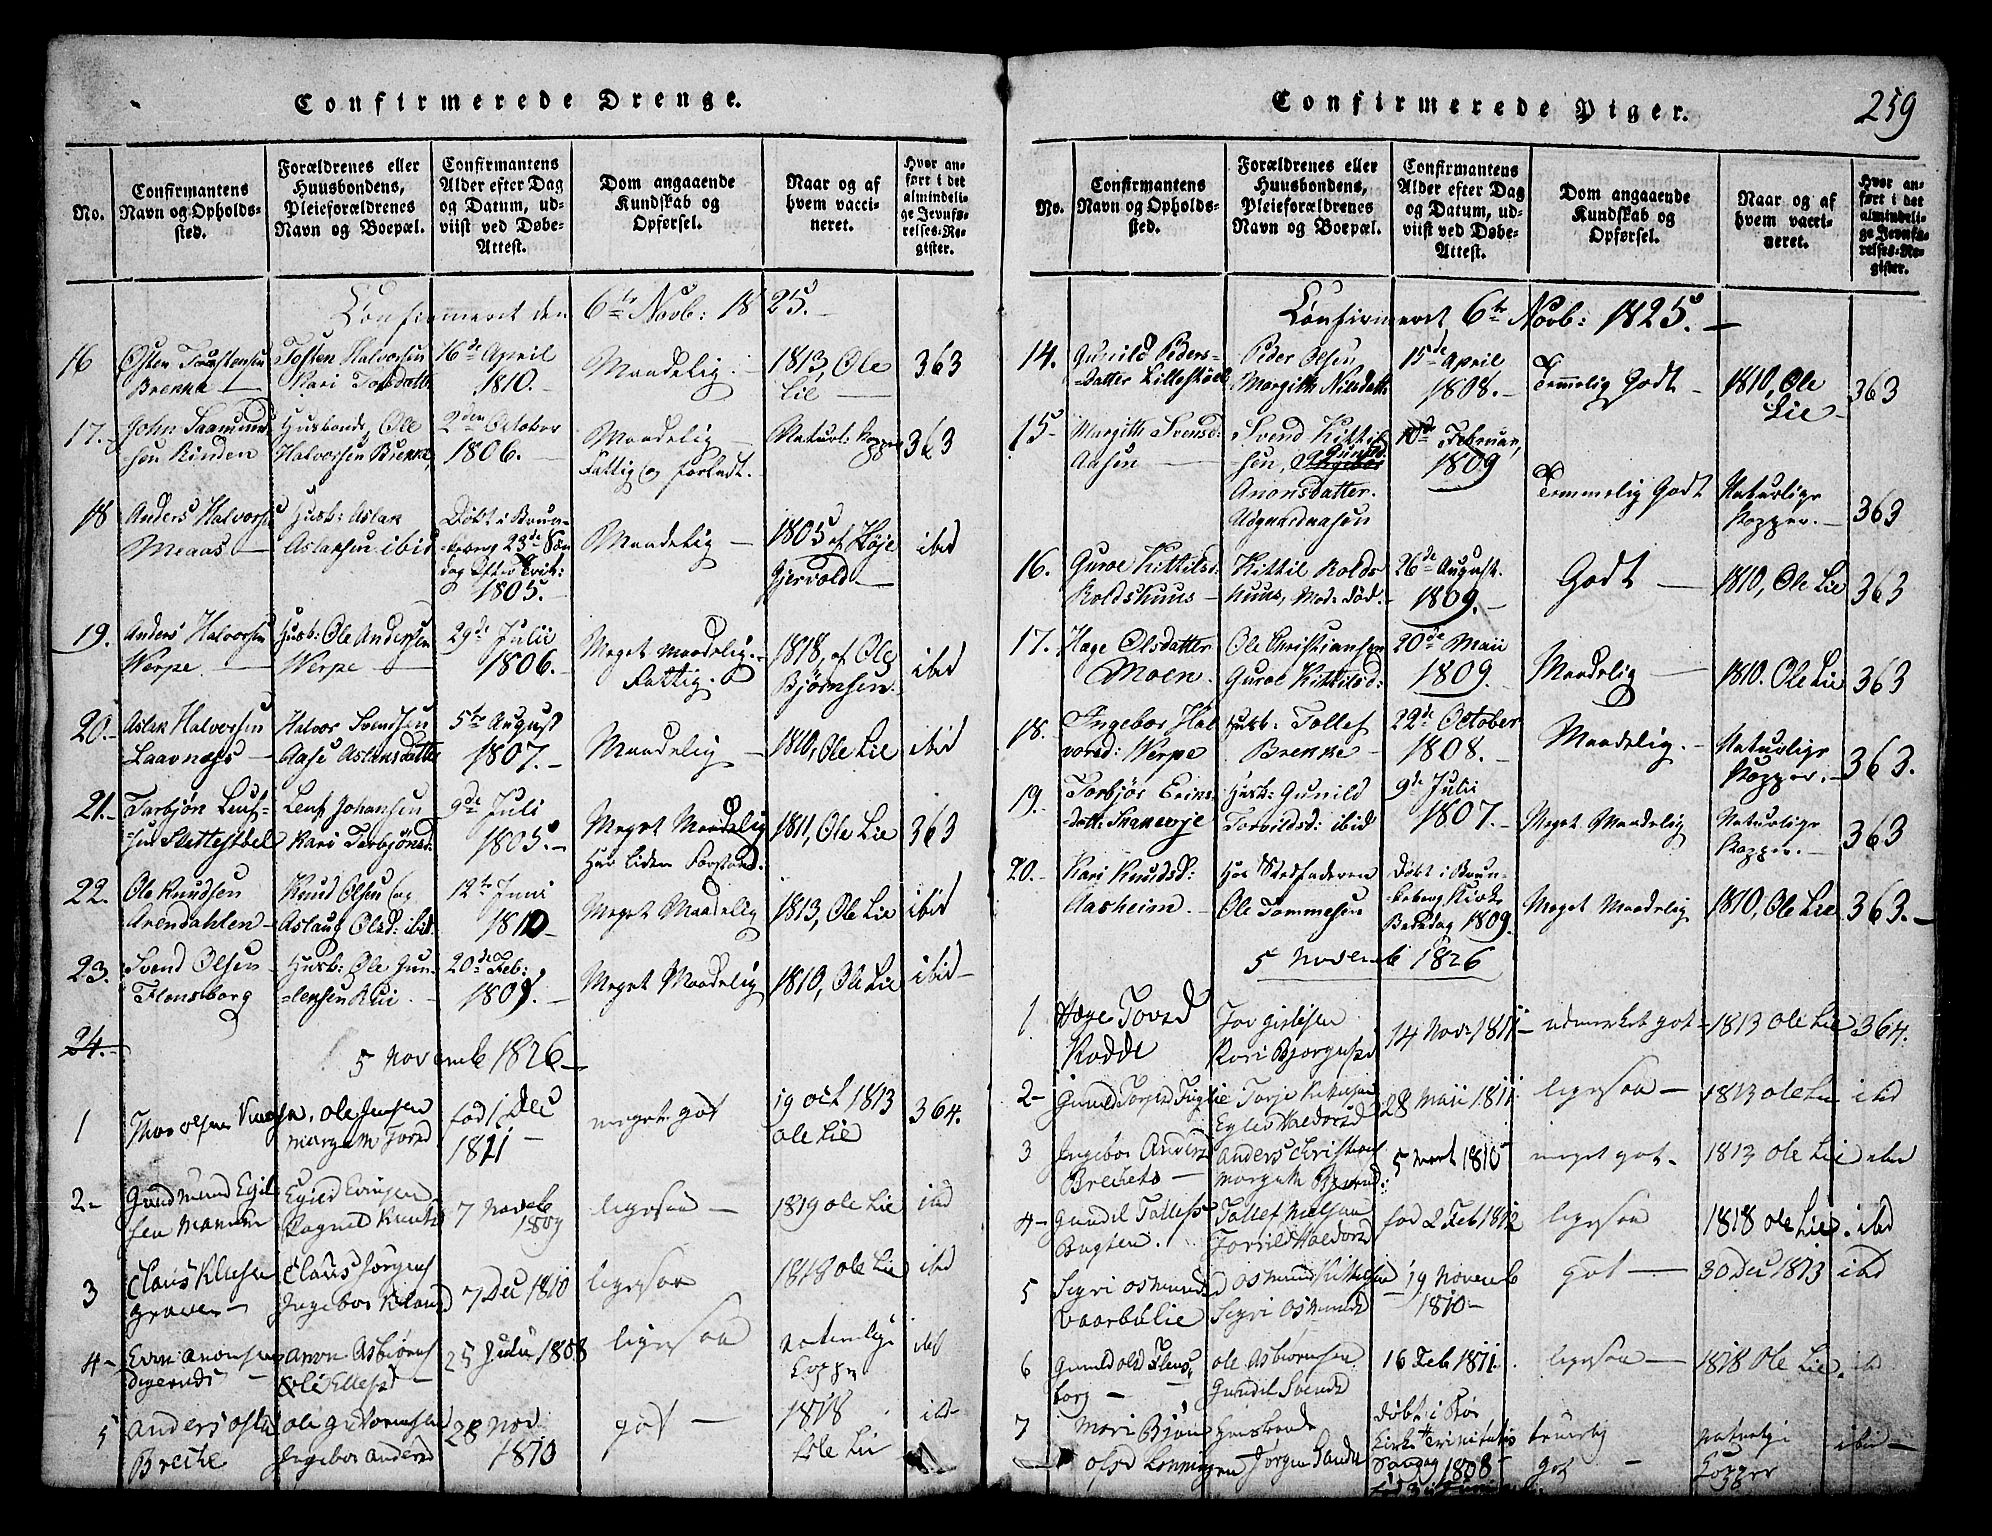 Confirmerede Drenge.
No.
Confirmantens
Navn og Opholds-
sted.
Forældrenes eller
Huusbondens,
Pleieforældrenes
Navn og Boepæl.
Confirmantens
Alder efter Dag
og Datum, ud-
viist ved Døbe-
Attest.
Dom angaaende
Kundskab og
Opførsel.
Naar og af
hvem vacci-
neret.
Hvor an-
ført i det
almindeli-
ge Jevnfø-
relses-Re-
gister.
Confirmeret den 6te Novb: 1825.
16
Østen Torstensen
Brekka
Tosten Halvorsen
Kari Torsdatt:
16de April
1810.
Maadelig.
1813, Ole
Lie
363
17.
John Saamund-
sen Rinden
Husbonde, Ole
Halvorsen Brekka,
2den October
1806.
Maadelig
Fattig og forladt.
Naturl: Kopper
363
18
Anders Halvorsen
Meaas
Husb: Aslak
Aslaksen ibid
Døbt i Brun-
keberg 23de Søn
dag efter Trin:
1805.
Maadelig
1805 af Høje
Gjervold
ibid
19.
Anders Halvorsen
Werpe
Husb: Ole Andersen
Werpe
29de Julii
1806.
Meget Maadelig.
Fattig.
1818, af Ole
Bjørnsen
ibid
20.
Aslak Halvorsen
Laavnæs
Halvor Svendsen
Aase Aslaksdatter
5te August
1807.
Maadelig
1810, Ole Lie
ibid
21.
Torbjøn Leuf-
sen Slettestøel
Leuf Johansen
Kari Torbjønsd.
9de Juli
1805.
Meget Maadelig
Har liden Forstand.
1811, Ole Lie
363
22.
Ole Knudsen
Arendahlen
Knud Olsen og
Aslaug Olsd: ibid.
12te Juni
1810
Meget Maadelig
1813, Ole Lie
ibid
23.
Svend Olsen
Flensborg
Husb: Ole Gun-
lensen Rui
20de Feb:
1809.
Meget Maadelig
1810, Ole Lie
ibid
24.
5 Novemb 1826
1
Thor Olsen
Ole Jensen
Margith Torsd
fød 1 Dec
1811
meget got
19 oct 1813
Ole Lie
364.
2
Gudmund Egil
sen
Egild Evensen
Ragnild Knuts
7 Novemb
1809
ligesaa
1819 Ole Lie
ibid
3
Claus Klusen
Graver
Claus Jørgens
Ingebor
7 Dec 1810
ligesaa
1818 Ole Lie
ibid
4
Even Anonsen
Anon Asbiørns
25 Julii 1808
ligesaa
naturlige
Kopper
ibid
5
Anders
Breche
Ole
Ingebor Andersd
28 Nov
1810
got
1818
Ole Lie
ibid
Confirmerede Piger.
259
No.
Confirmantens
Navn og Opholds-
sted.
Forældrenes eller
Huusbondens,
Pleieforældrenes
Navn og Boepæl.
Confirmantens
Alder efter Dag
og Datum, ud-
viist ved Døbe-
Attest.
Dom angaaende
Kundskab og
Opførsel.
Naar og af
hvem vacci-
neret.
Hvor an-
ført i det
almindeli-
ge Jevnfø-
relses-Re-
gister.
Confirmeret 6te Novb: 1825.
14.
Gunild Peders-
Datter Lillestøel
Peder Olsen
Margith Nilsdatt:
15de April
1808.
Temmelig Godt
1810, Ole
Lie
363
15
Margith Svensd:
Aasen
Svend Kittil
sen, Gunild
Anonsdatter.
10de Februar,
1809
Temmelig Godt
Naturlige
Kopper.
363
16.
Guroe Kittilsd.
Roldshuus
Kittil Rolds
huus, Mod: død.
26de August.
1809.
Godt
1810, Ole Lie
363
17.
Hage Olsdatter
Moen.
Ole Christiansen
Guroe Kittilsd:
20de Maii
1809.
Maadelig
1810. Ole Lie
363
18.
Ingebor Hal
vorsd: Werpe
Husb: Tollef
Brekke
22de October
1808.
Maadelig.
Naturlige
Kopper.
363.
19.
Torbjør Eriks
datt:
Husb: Gunild
Torvildsd: ibid
9de Julii
1807.
Meget Maadelig
Naturlige
Kopper.
363
20.
Kari Knudsd:
Aasheim.
Hos Stedfaderen
Ole Tommesen
Døbt i Brun-
keberg Kirke
Bededag 1809.
Meget Maadelig
1810, Ole Lie
363.
5 Novemb 1826
1.
Hæge Tovsd
Rodde
Tov Gislesen
Kari Bjorgufsd
14 Nov 1811
udmerket got
1813 Ole Lie
364.
2
Gunild
Torje
28 Maii 1811
ligesaa
1813 Ole Lie
ibid
3
Ingebor Andersd
Anders Christens
Margith
5 Mart 1810
meget got
1813 Ole Lie
ibid
4
Gundil Tollefs
Bugten.
Tollef Nielsen
Torrild Haldorsd
fød 2 Feb 1812
ligesaa
1818 Ole Lie
ibid
5
Segri Osmunds
Vaarbulie
Osmund Kittelsen
Segri Osmunds
19 Novemb
1810
got
30 Dec 1813
ibid
6
Gunild Olsd Flens
borg
Ole Asbiørnsen
Gundil Svends
16 Feb 1811.
ligesaa
1818 Ole Lie
ibid
7
Mari Bjøn
Huusbonde
Jørgen
døbt i
Kirke Trinitatis
Søndag 1808
got
naturlige
Kopper
ibid